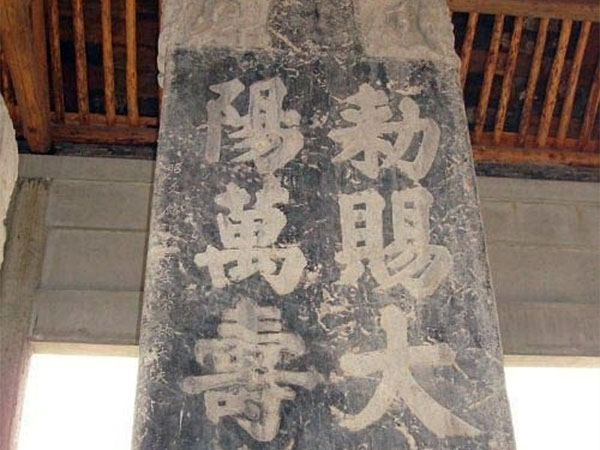 敕賜大
陽萬壽